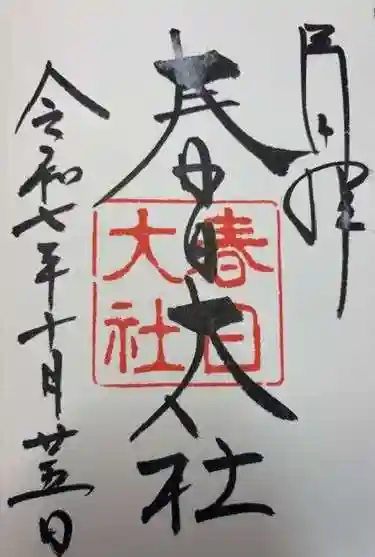 春日大社
春日
大社
令和七年十月廿五日